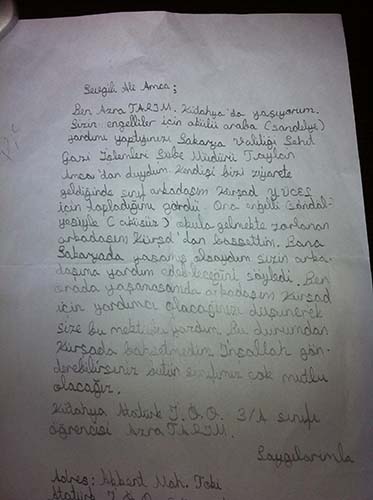 Sevgili Ali Amca;
Ben Azra TARIM. Kütahya'da yaşıyorum.
Sizin engelliler için akülü araba (sandelye)
yardımı yaptığınızı Sakarya Valiliği Şehit
Gazi İşlemleri Şube Müdürü Taylan
Amca'dan duydum. Kendisi bizi ziyarete
geldiğinde sınıf arkadaşım Kürşad YÜCES
için topladığımı gördü. Ona engelli sandal-
yesiyle (aküsüz) okula gelmekte zorlanan
arkadaşım Kürşad'dan bahsettim. Bana
Sakaryada yaşamış olsaydım sizin arka-
daşıma yardım edebileceğini söyledi. Ben
orada yaşamasamda arkadaşım Kürşad
için yardımcı olacağınızı düşünerek
size bu mektubu yazdım. Bu durumdan
Kürşada bahsetmedim. İnşallah gön-
derebilirseniz bütün sınıfımız çok mutlu
olacağız.
Kütahya Atatürk İ.Ö.O. 3/A sınıfı
öğrencisi Azra TARIM.
Saygılarımla
Adres: Mah. Toki
Atatürk İ.Ö.O